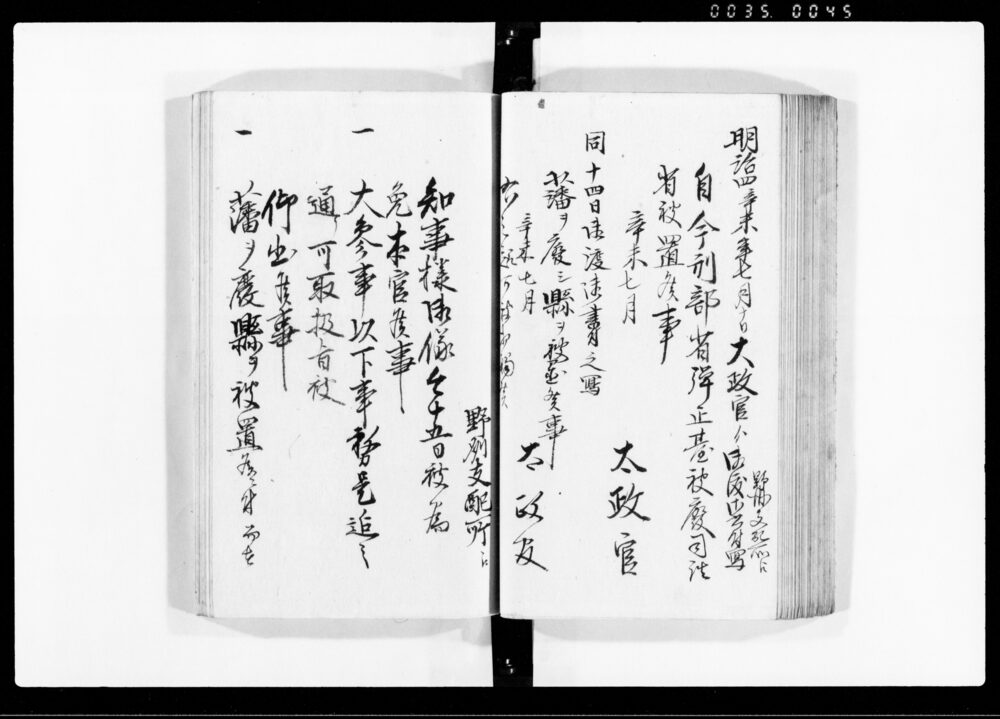 0035 0045
明治四辛未年七月十日大政官ゟ御渡御書付写
野州支配所に
自今刑部省弾正台被廃司法
省被置候事
辛未七月
太政官
同十四日御渡御書付之写
藩ヲ廃シ県ヲ被置候事
辛未七月
太政官
野州支配所に
知事様御儀今十五日被為
免本官候事
一 大参事以下事務是迄之
通り可取扱旨被
仰出候事
一 藩ヲ廃県ヲ被置候付而者